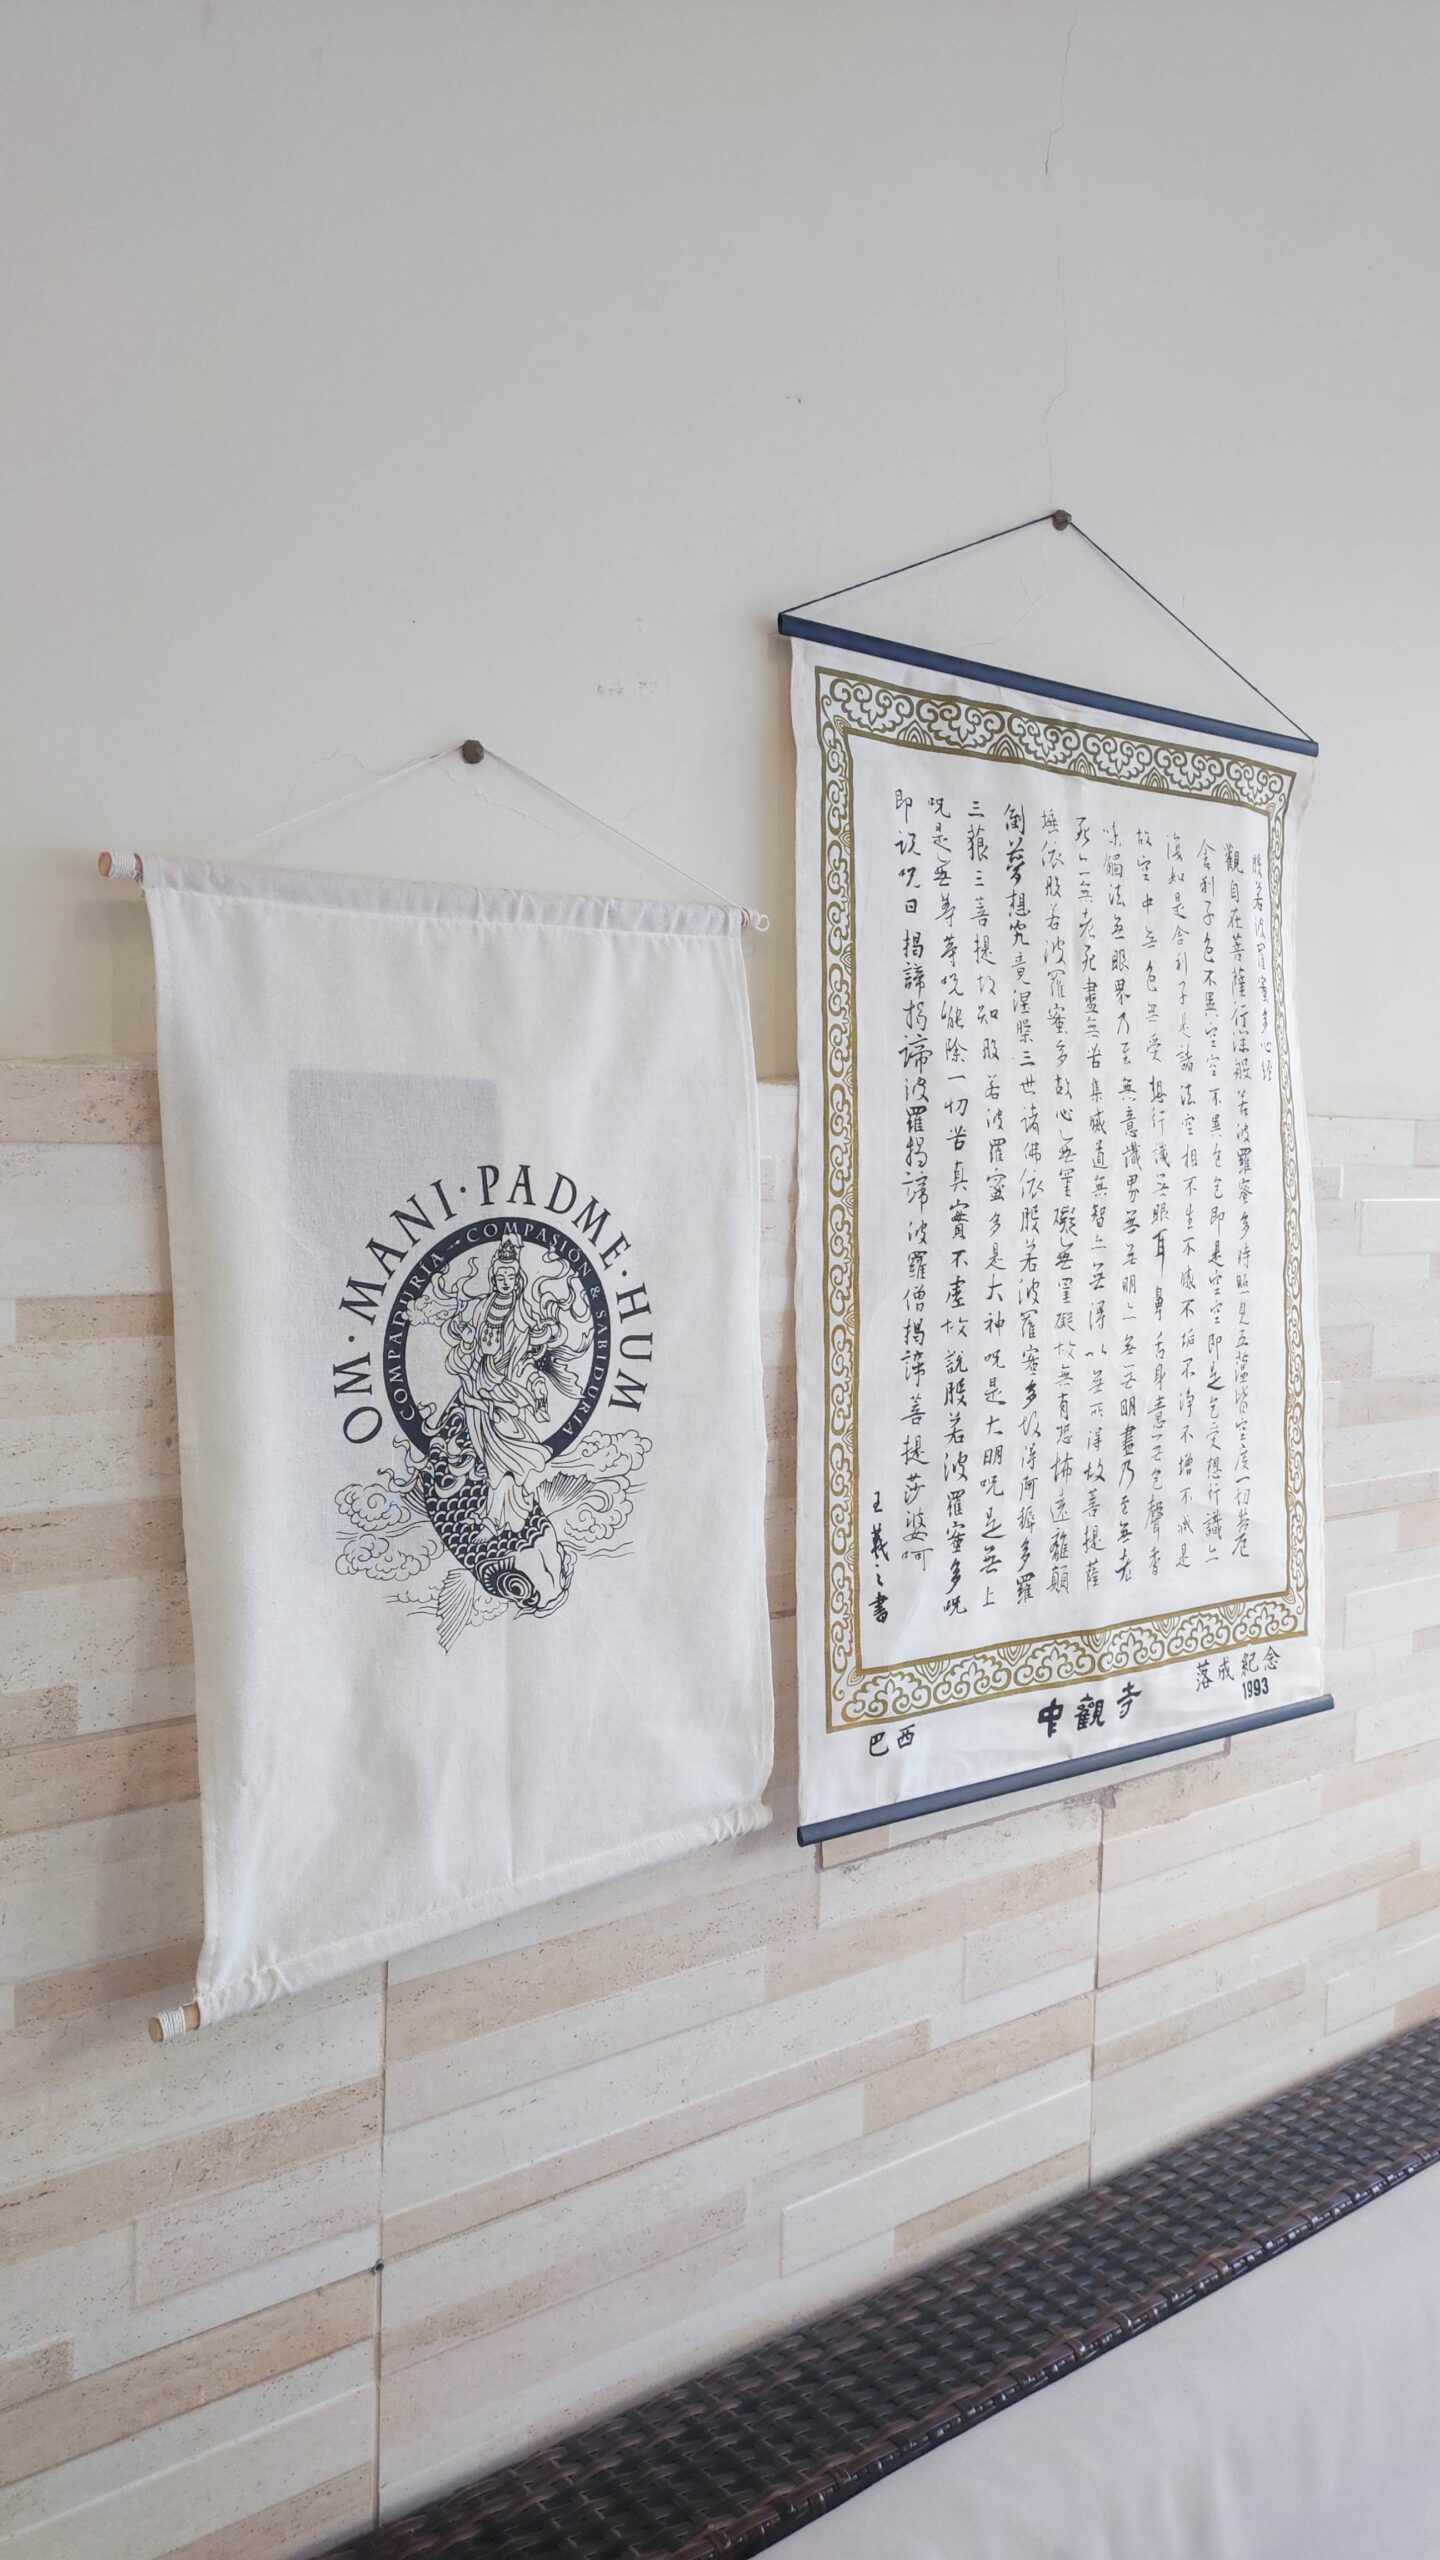 OM · MANI · PADME · HUM
COMPADURÍA → COMPASIÓN & SABIDURÍA
般若波羅蜜多心經
觀自在菩薩行深般若波羅蜜多時照見五蘊皆空度一切苦厄
舍利子色不異空空不異色色即是空空即是色受想行識亦
復如是舍利子是諸法空相不生不滅不垢不淨不增不減是
故空中無色無受想行識無眼耳鼻舌身意無色聲香
味觸法無眼界乃至無意識界無無明亦無無明盡乃至無老
死亦無老死盡無苦集滅道無智亦無得以無所得故菩提薩
埵依般若波羅蜜多故心無罣礙無罣礙故無有恐怖遠離顛
倒夢想究竟涅槃三世諸佛依般若波羅蜜多故得阿耨多羅
三藐三菩提故知般若波羅蜜多是大神咒是大明咒是無上
咒是無等等咒能除一切苦真實不虛故說般若波羅蜜多咒
即說咒曰揭諦揭諦波羅揭諦波羅僧揭諦菩提莎婆呵
王羲之書
落成紀念
1993
中觀寺
巴西